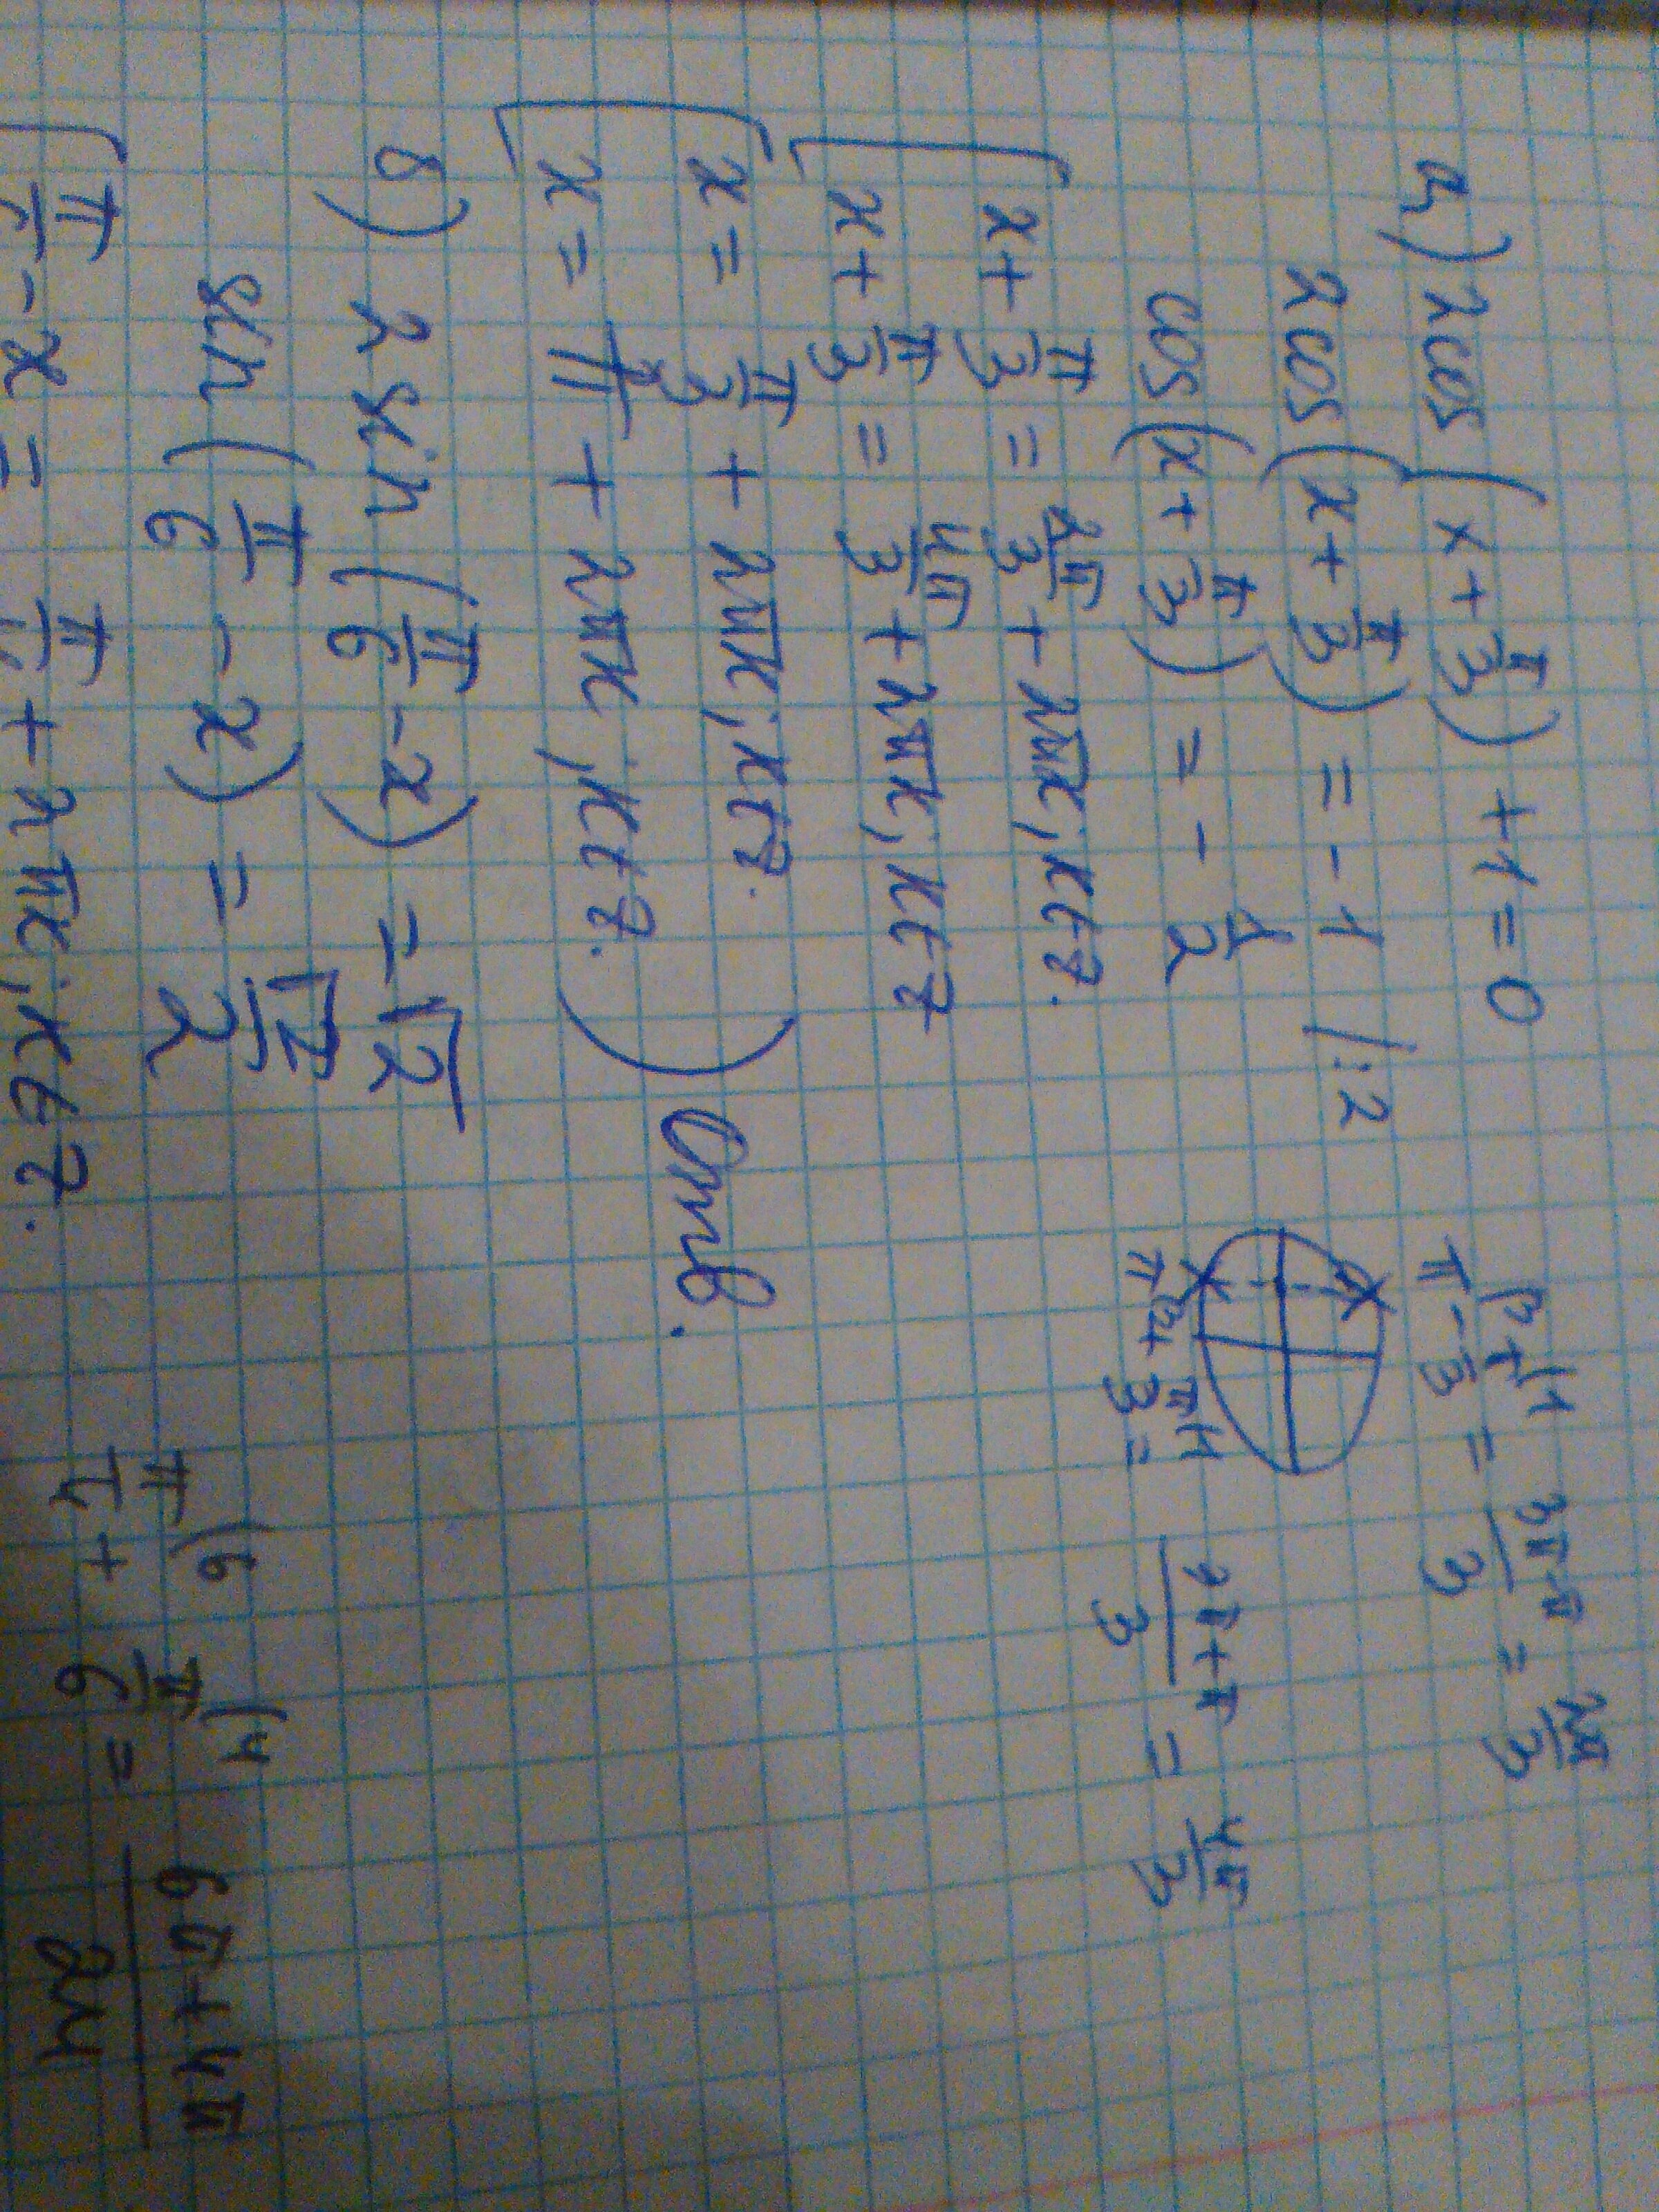 а) 2cos(x + π/3) + 1 = 0
2cos(x + π/3) = -1 /:2
cos(x + π/3) = - 1/2
x + π/3 = 2π/3 + 2πк, к∈Z.
x + π/3 = 4π/3 + 2πк, к∈Z
x = π/3 + 2πк, к∈Z.
x = π + 2πк, к∈Z. ) Ответ.
π - π/3 = 3π-π/3 = 2π/3
π + π/3 = 3π+π/3 = 4π/3
б) 2 sin(π/6 - x) = √2
sin(π/6 - x) = √2/2
- x = + 2πк, к∈Z.
π/4 + π/6 = 6π+4π/24